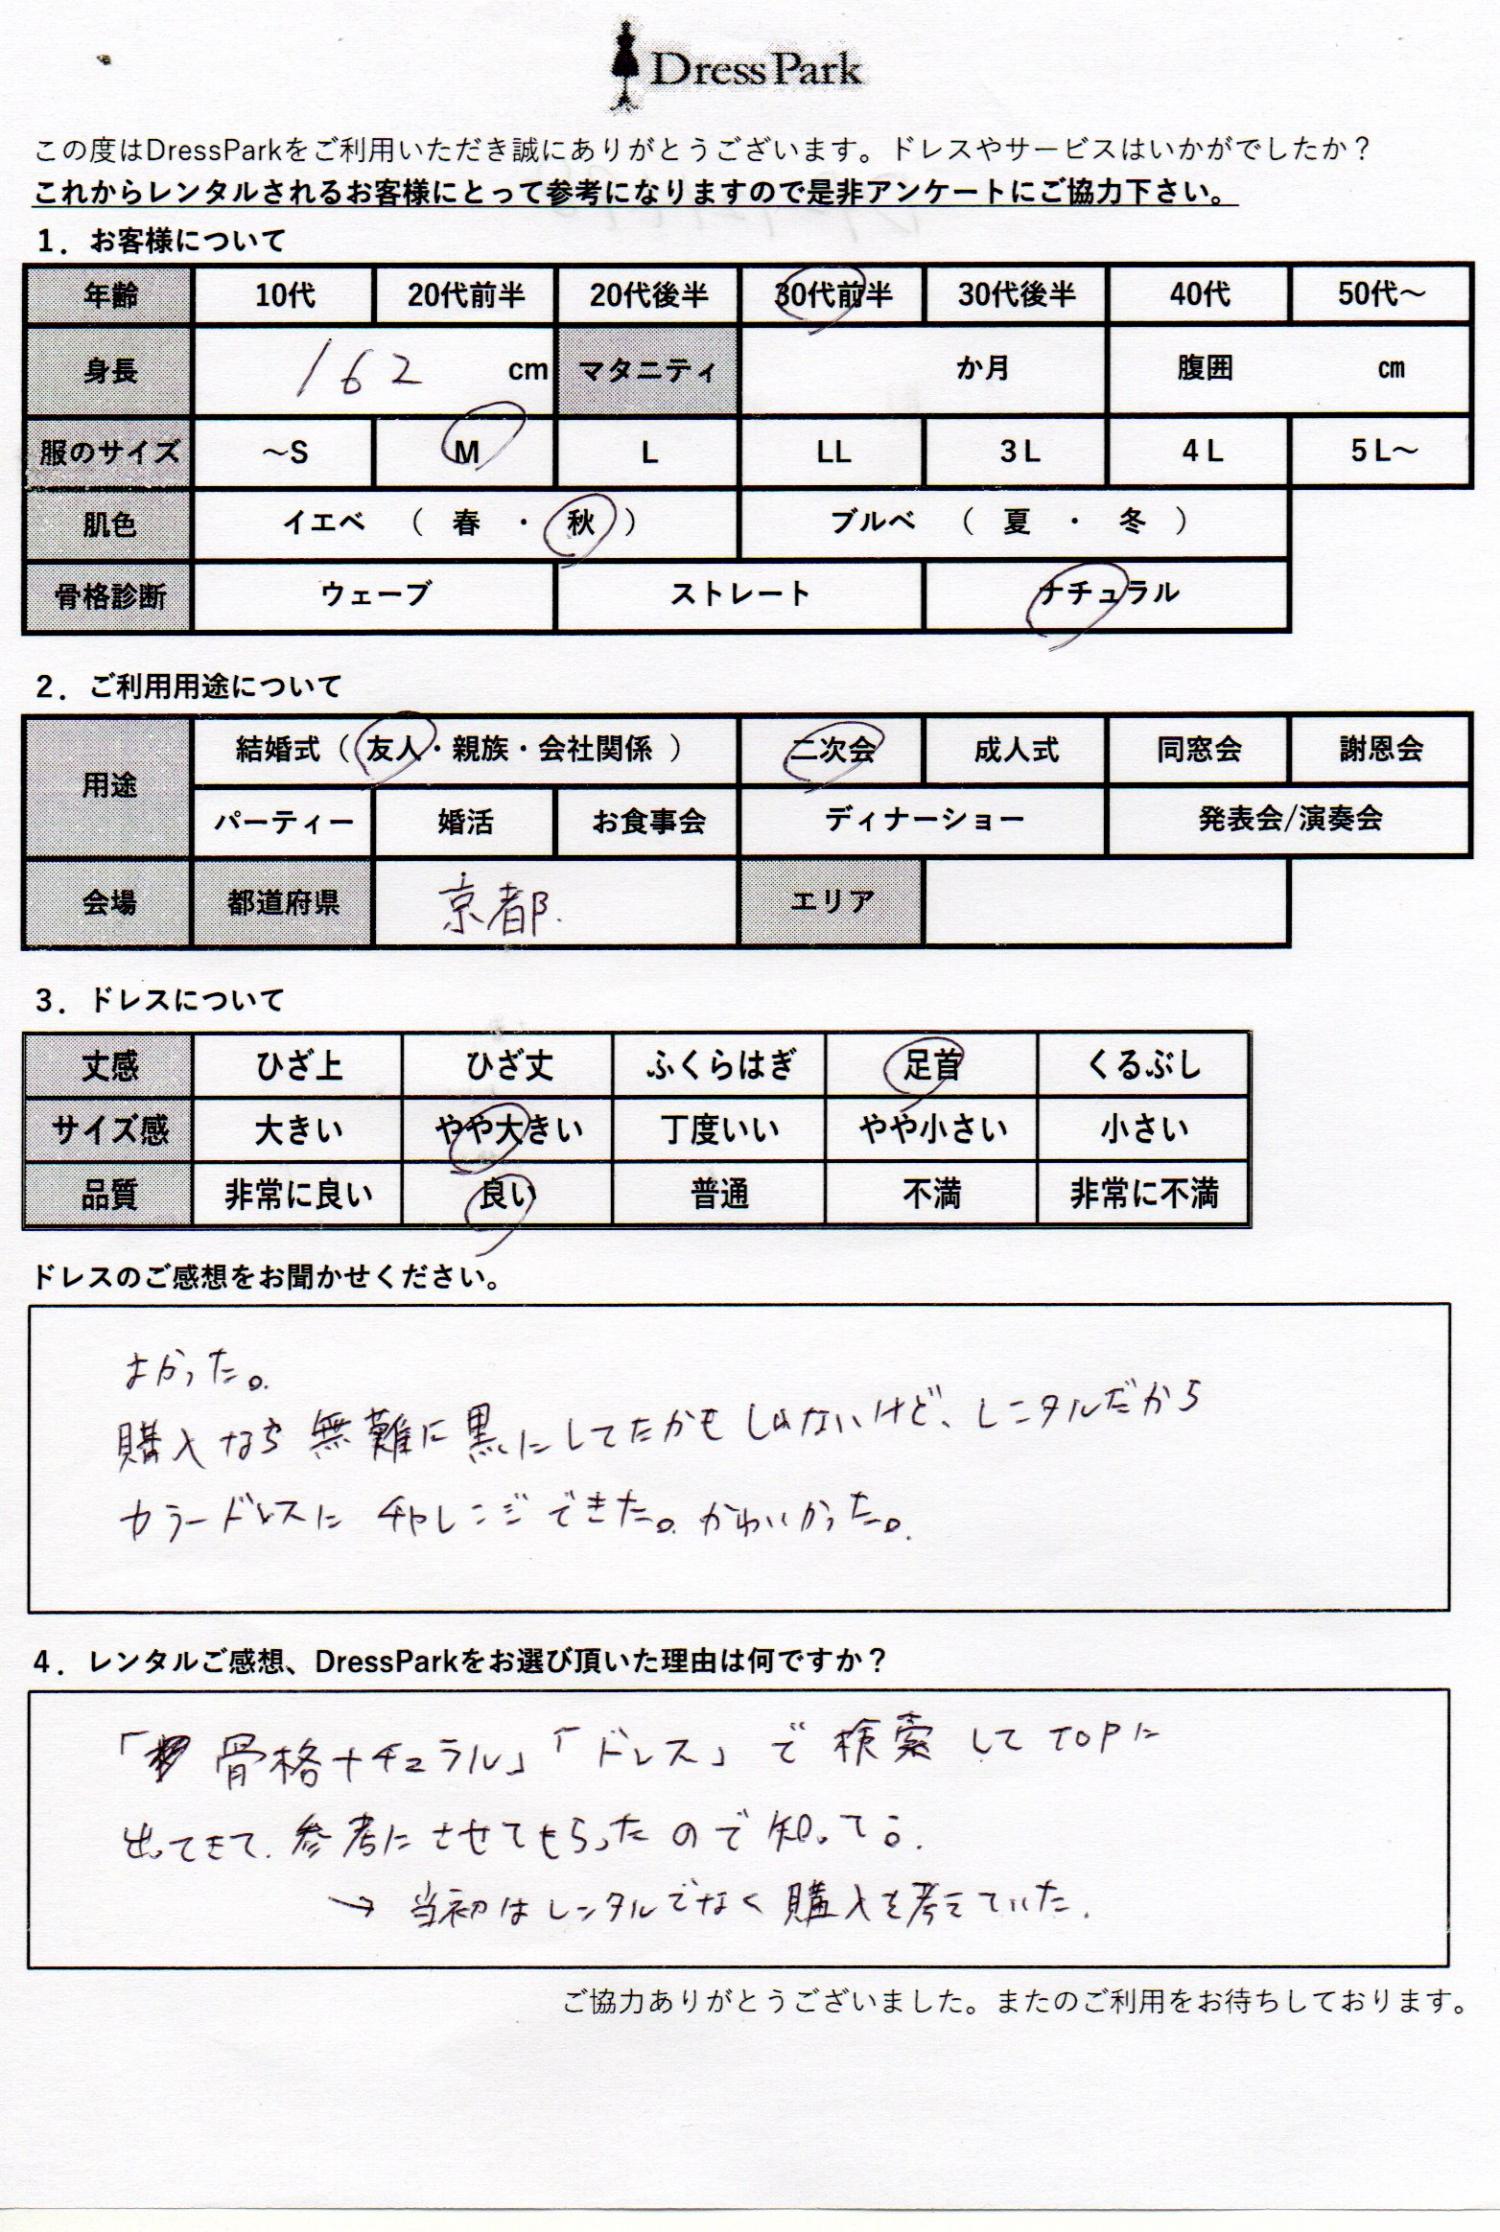 DressPark
この度はDressParkをご利用いただき誠にありがとうございます。ドレスやサービスはいかがでしたか？
これからレンタルされるお客様にとって参考になりますので是非アンケートにご協力下さい。
1．お客様について
年齢 10代 20代前半 20代後半 30代前半 30代後半 40代 50代～
身長 162 cm マタニティ か月 腹囲 ㎝
服のサイズ ～S M L LL 3L 4L 5L～
肌色 イエベ （ 春 ・ 秋 ） ブルベ （ 夏 ・ 冬 ）
骨格診断 ウェーブ ストレート ナチュラル
2．ご利用用途について
用途 結婚式（ 友人・親族・会社関係 ） 二次会 成人式 同窓会 謝恩会
パーティー 婚活 お食事会 ディナーショー 発表会/演奏会
会場 都道府県 京都. エリア
3．ドレスについて
丈感 ひざ上 ひざ丈 ふくらはぎ 足首 くるぶし
サイズ感 大きい やや大きい 丁度いい やや小さい 小さい
品質 非常に良い 良い 普通 不満 非常に不満
ドレスのご感想をお聞かせください。
よかった。
購入なら無難に黒にしてたかもしれないけど、レンタルだから
カラードレスにチャレンジできた。かわいかった。
4．レンタルご感想、DressParkをお選び頂いた理由は何ですか？
「骨格ナチュラル」「ドレス」で検索してTOPに
出てきて、参考にさせてもらったので知ってる。
→ 当初はレンタルでなく購入を考えていた。
ご協力ありがとうございました。またのご利用をお待ちしております。